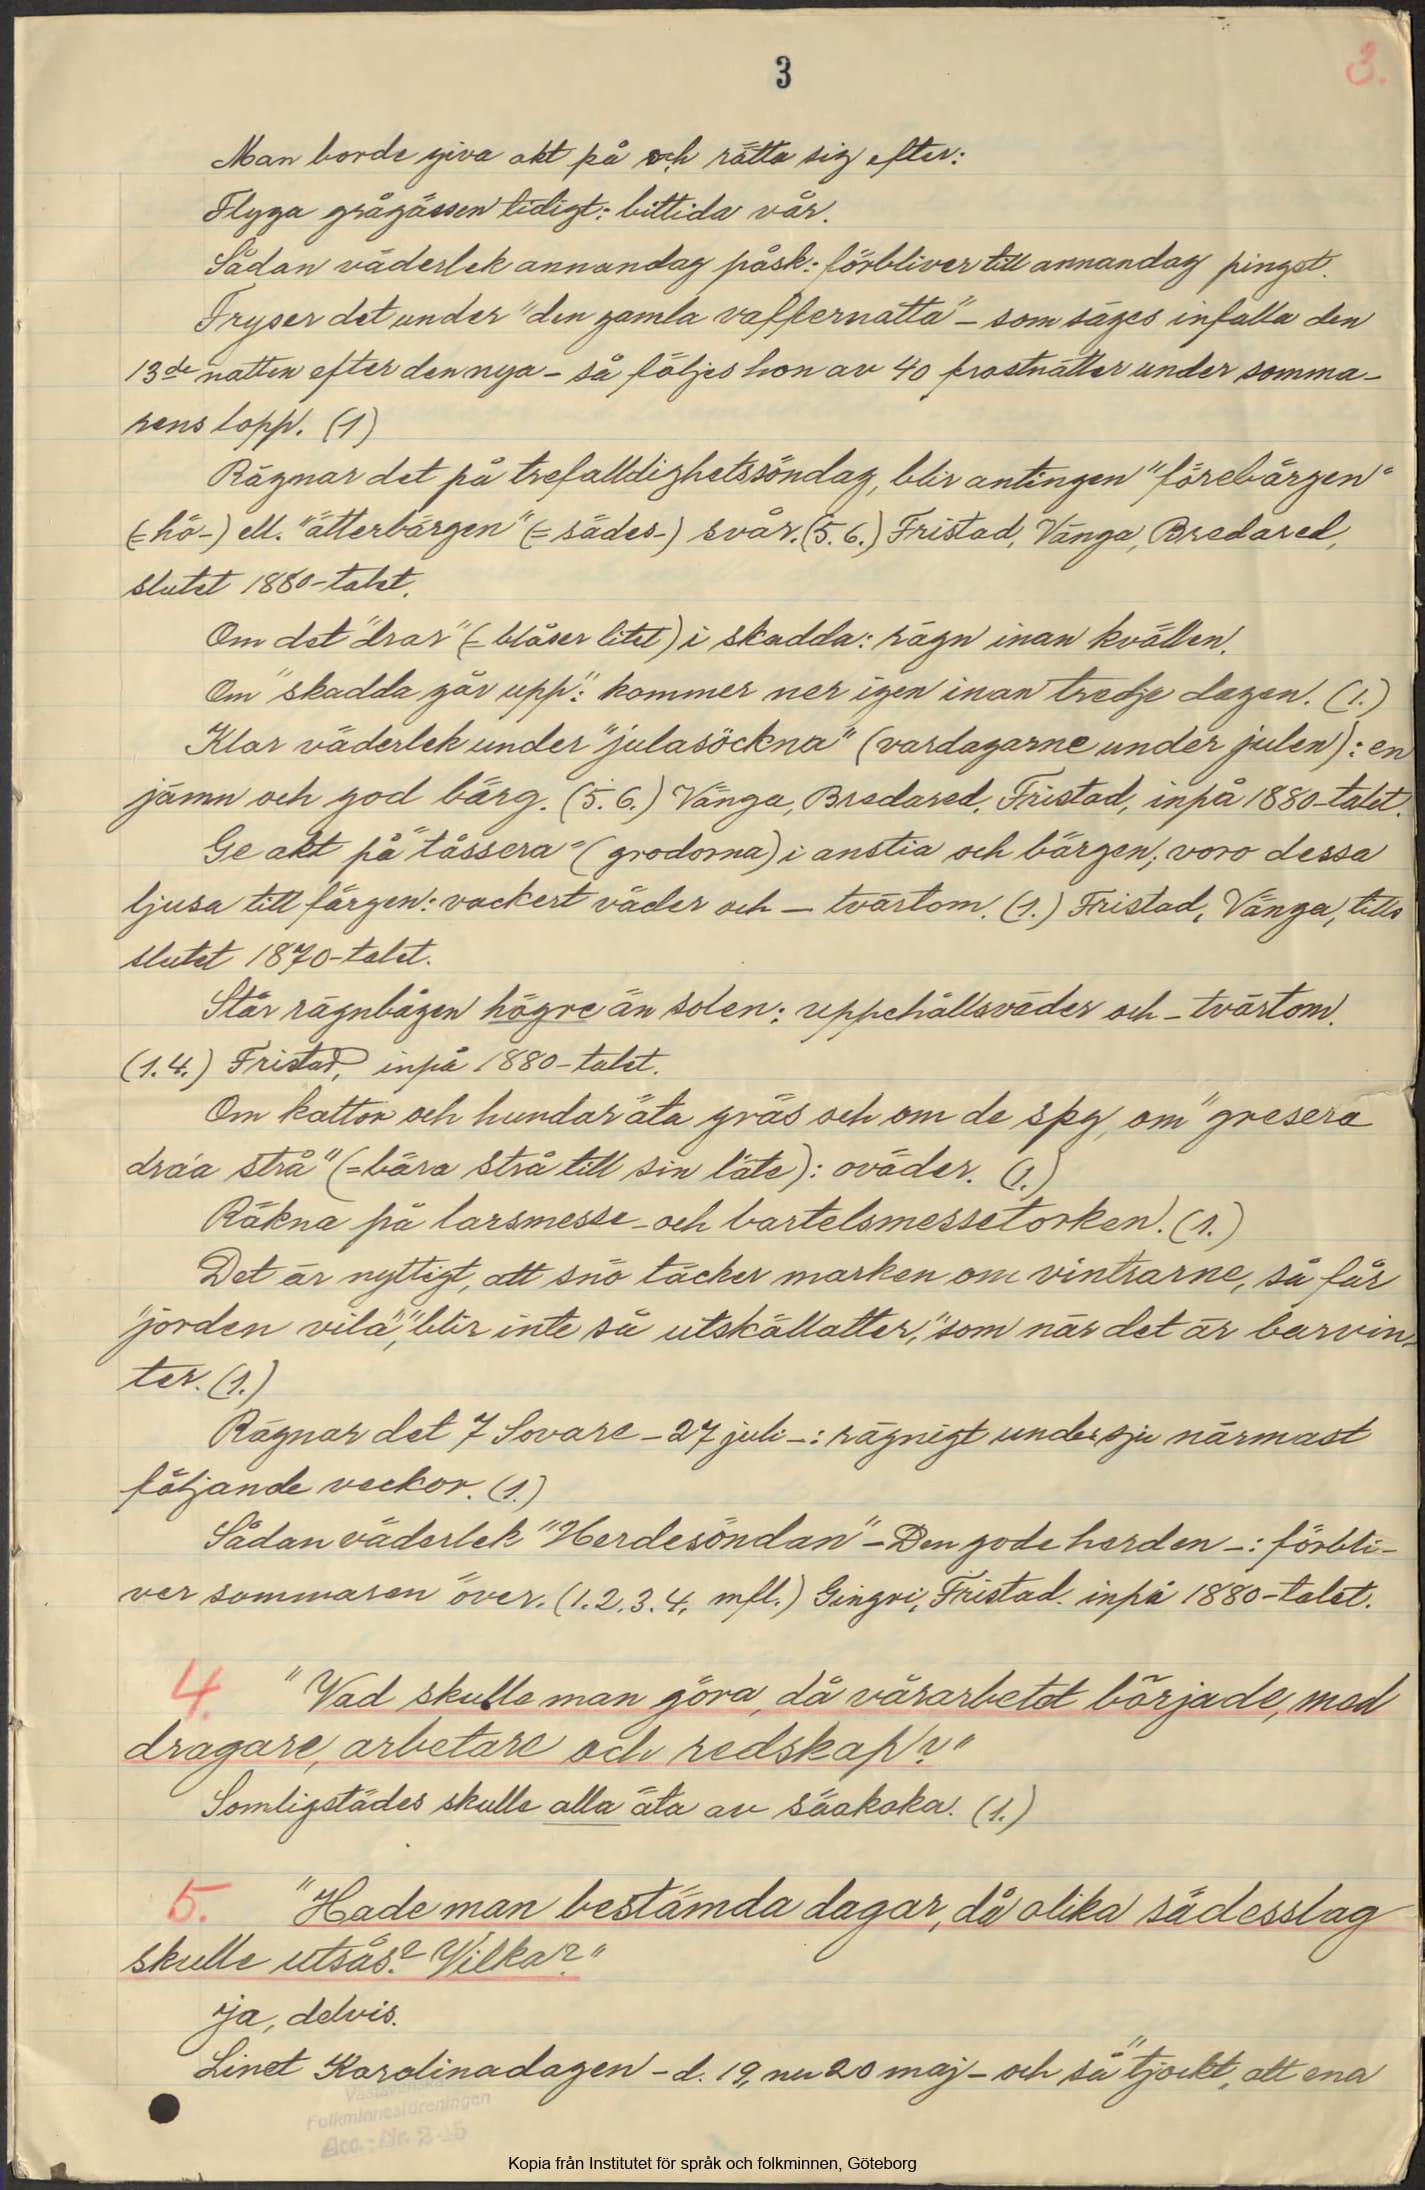 3
3.
Man borde giva akt på och rätta sig efter:
Flyga grågässen tidigt: bittida vår.
Sådan väderlek annandag påsk: förbliver till annandag pingst.
Fryser det under "den gamla vaffernatta" – som säges infalla den
13de natten efter den nya – så följes hon av 40 frostnätter under somma-
rens lopp. (1)
Rägnar det på trefalldighetssöndag, blir antingen "förebärgen"
(= hö-) ell. "ätterbärgen" (= sädes-) svår. (5. 6.) Fristad, Vänga, Bredared,
slutet 1880-talet.
Om det "drar" (= blåser litet) i skadda: rägn inan kvällen.
Om "skadda går upp": kommer ner igen inan tredje dagen. (1.)
Klar väderlek under "julasöckna" (vardagarne under julen): en
jämn och god bärg. (5. 6.) Vänga, Bredared, Fristad, inpå 1880-talet.
Ge akt på "tåssera" (grodorna) i anstia och bärgen; voro dessa
ljusa till färgen: vackert väder och – tvärtom. (1.) Fristad, Vänga, tills
slutet 1870-talet.
Står rägnbågen högre än solen: uppehållsväder och – tvärtom.
(1. 4.) Fristad, inpå 1880-talet.
Om kattor och hundar äta gräs och om de spy, om "gresera
dra'a strå" (= bära strå till sin läte): oväder. (1.)
Räkna på larsmesse- och bartelsmessetorken. (1.)
Det är nyttigt, att snö täcker marken om vintrarne, så får
"jorden vila", "blir inte så utskällatter," som när det är barvin-
ter. (1.)
Rägnar det 7 Sovare – 27 juli –: rägnigt under sju närmast
följande veckor. (1.)
Sådan väderlek "Herdesöndan" – Den gode herden –: förbli-
ver sommaren över. (1. 2. 3. 4. mfl.) Gingri, Fristad. inpå 1880-talet.
4. "Vad skulle man göra, då vårarbetet började, med
dragare, arbetare och redskap?"
Somligstädes skulle alla äta av såakaka. (1.)
5. "Hade man bestämda dagar, då olika sädesslag
skulle utsås? Vilka?"
Ja, delvis.
Linet Karolinadagen – d. 19, nu 20 maj – och så "tjockt, att ena
Västsvenska
Folkminnesföreningen
Acc.-Nr.
Kopia från Institutet för språk och folkminnen, Göteborg